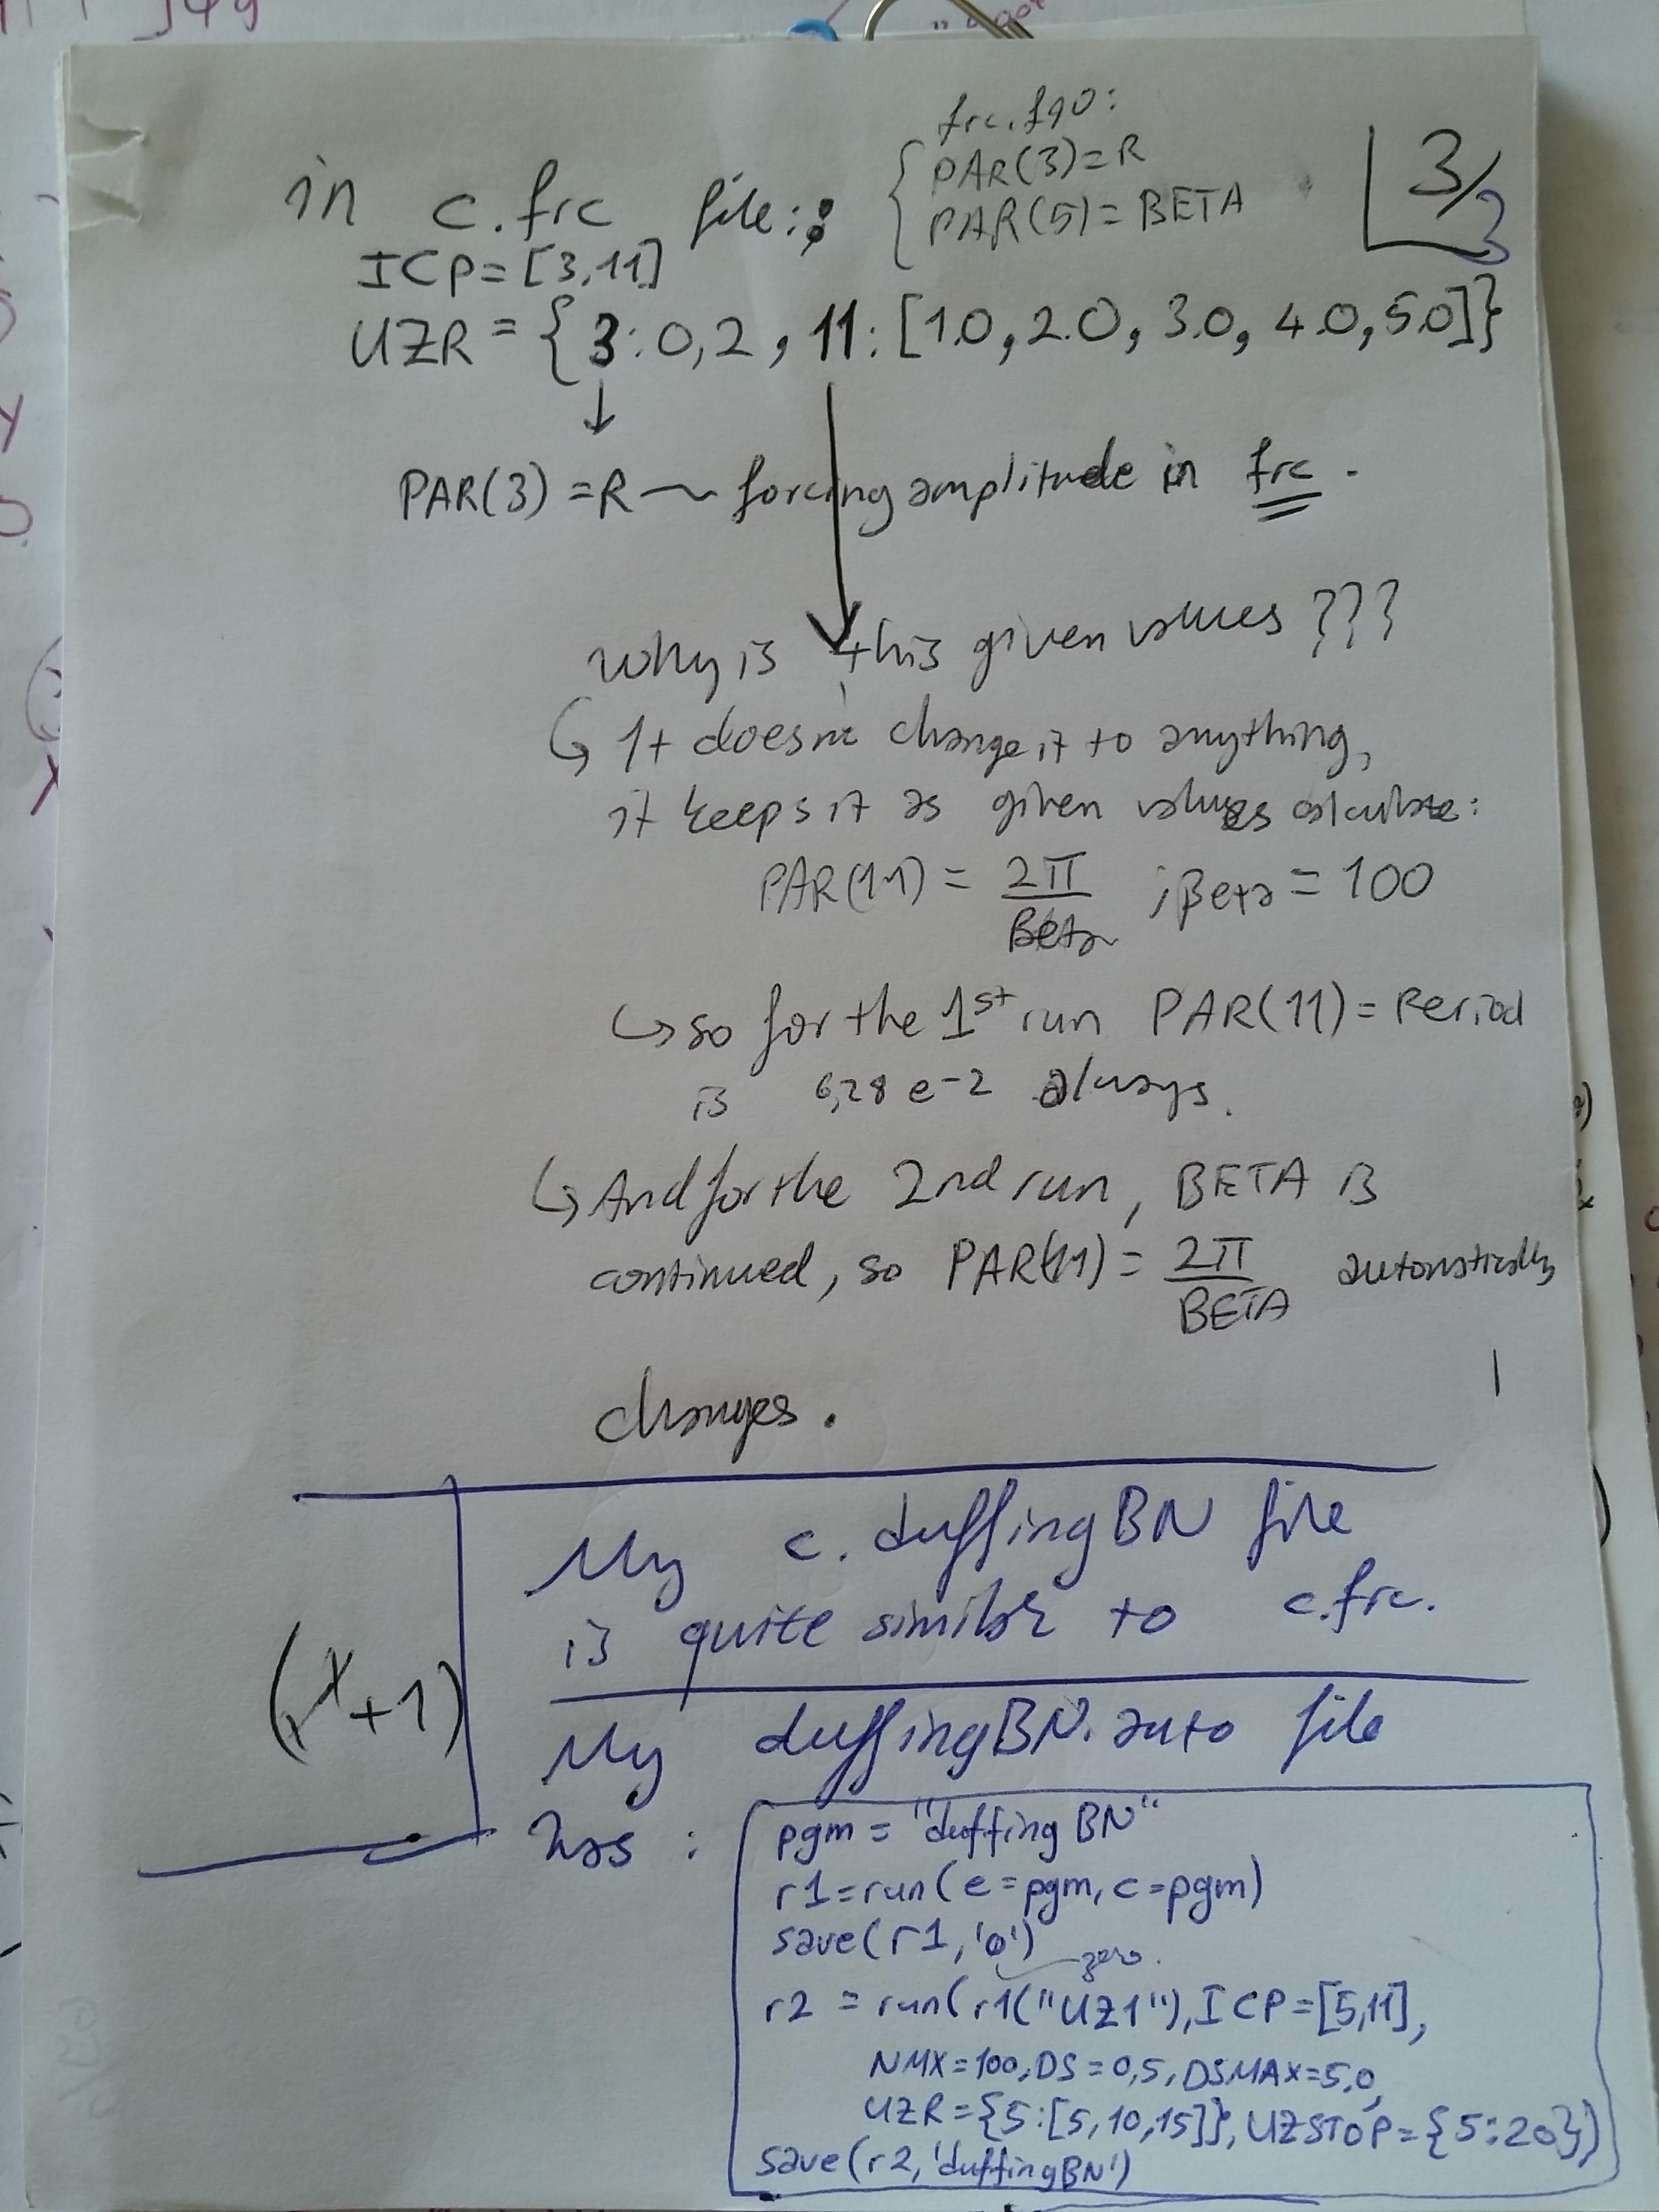 frc.f90:
PAR(3)=R
PAR(5)=BETA
3/3
in c.frc file:
ICP=[3,11]
UZR = {3:0,2, 11:[1.0, 2.0, 3.0, 4.0, 5.0]}
PAR(3)=R ~ forcing amplitude in frc.
why is this given values ???
It doesnt change it to anything,
it keeps it as given values calculate:
PAR(11) = 2π/Beta ; Beta = 100
so for the 1st run PAR(11) = Period
is 6,28 e-2 always.
And for the 2nd run, BETA is
continued, so PAR(11) = 2π/BETA automatically
changes.
My c.duffingBN file
is quite similar to c.frc.
My duffingBN.auto file
has:
pgm = "duffingBN"
r1=run(e=pgm, c=pgm)
save(r1,'0')
zero.
r2 = run(r1("UZ1"), ICP=[5,11],
NMX=100, DS=0,5, DSMAX=5,0,
UZR={5:[5,10,15]}, UZSTOP={5:20})
save(r2,'duffingBN')